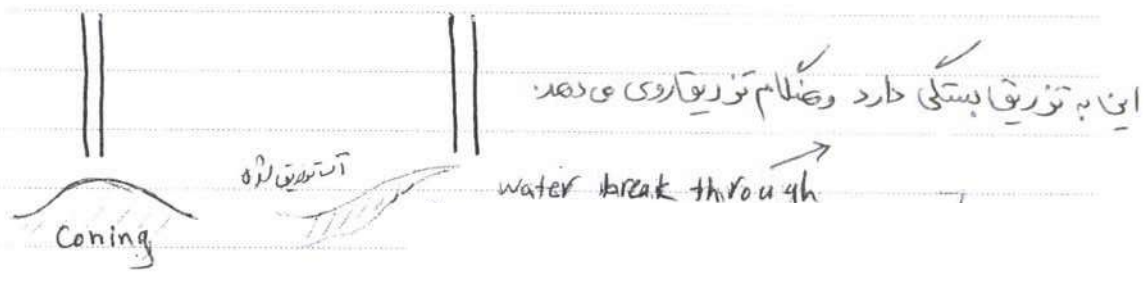 این به تزریق بستگی دارد و هنگام تزریق روی می‌دهد.
آب تزریق شده
water break through
Coning